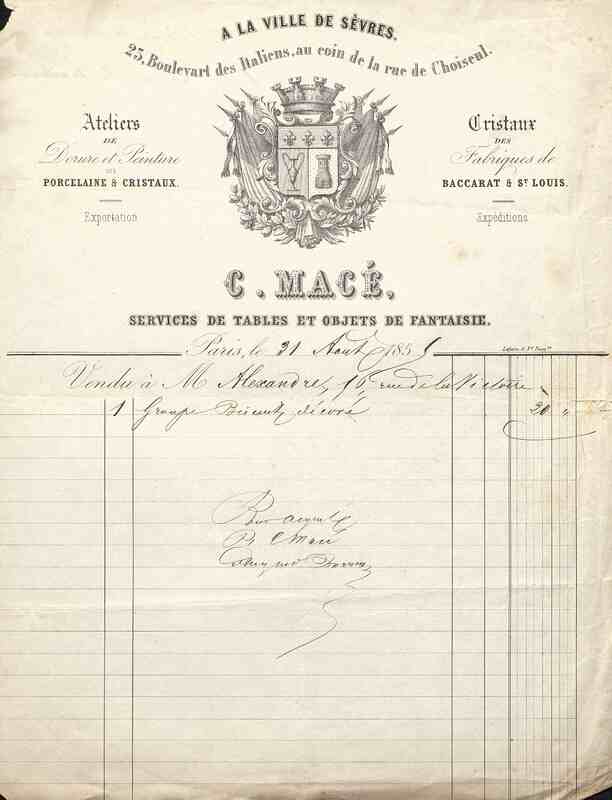 A LA VILLE DE SÈVRES.
25, Boulevart des Italiens, au coin de la rue de Choiseul.
Ateliers
DE
Dorure et Peinture
SUR
PORCELAINE & CRISTAUX.
Exportation
Cristaux
DES
Fabriques de
BACCARAT & ST LOUIS.
Expéditions
C. MACÉ,
SERVICES DE TABLES ET OBJETS DE FANTAISIE.
Paris, le 31 Aout 1855
Vendu à M Alexandre, 16 rue de la Victoire
1 Groupe Biscuit décoré 20 "
Pour acquit
Pr C Macé